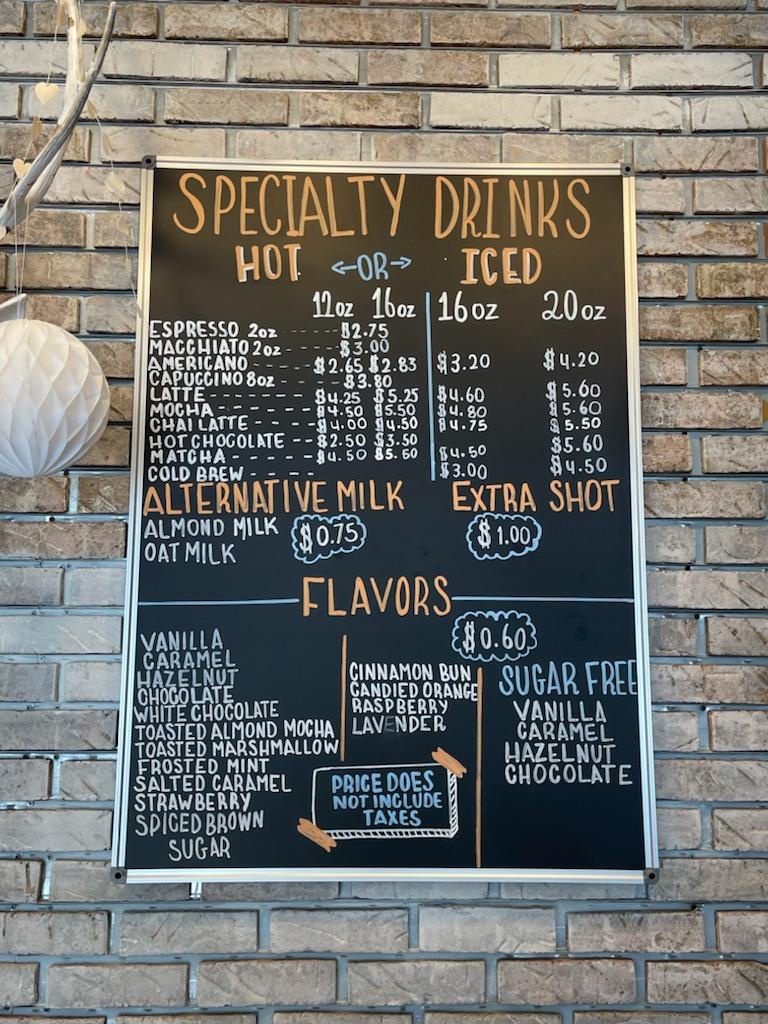 SPECIALTY DRINKS
HOT <-OR-> ICED
12oz 16oz 16oz 20oz
ESPRESSO 2oz ----- $2.75
MACCHIATO 2oz ----- $3.00
AMERICANO ----- $2.65 $2.83 $3.20 $4.20
CAPUCCINO 8oz ---- $3.80
LATTE ------- $4.25 $5.25 $4.60 $5.60
MOCHA ------ $4.50 $5.50 $4.80 $5.60
CHAI LATTE ---- $4.00 $4.50 $4.75 $5.50
HOT CHOCOLATE -- $2.50 $3.50 $5.60
MATCHA ----- $4.50 $5.50 $4.50 $4.50
COLD BREW ----- $3.00
ALTERNATIVE MILK EXTRA SHOT
ALMOND MILK $0.75 $1.00
OAT MILK
FLAVORS
$0.60
VANILLA
CARAMEL
HAZELNUT
CHOCOLATE
WHITE CHOCOLATE
TOASTED ALMOND MOCHA
TOASTED MARSHMALLOW
FROSTED MINT
SALTED CARAMEL
STRAWBERRY
SPICED BROWN
SUGAR
CINNAMON BUN
CANDIED ORANGE
RASPBERRY
LAVENDER
PRICE DOES
NOT INCLUDE
TAXES
SUGAR FREE
VANILLA
CARAMEL
HAZELNUT
CHOCOLATE